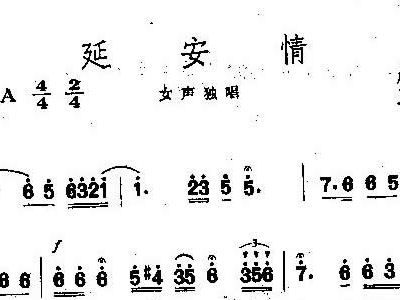 延安情
A 4/4 2/4 女声独唱
6 5 6321 | 1. 23 5 5. | 7. 6 6 5
6 6 | f 6 6 6 5 #4 35 6 3 356 | 7. 6 6 3